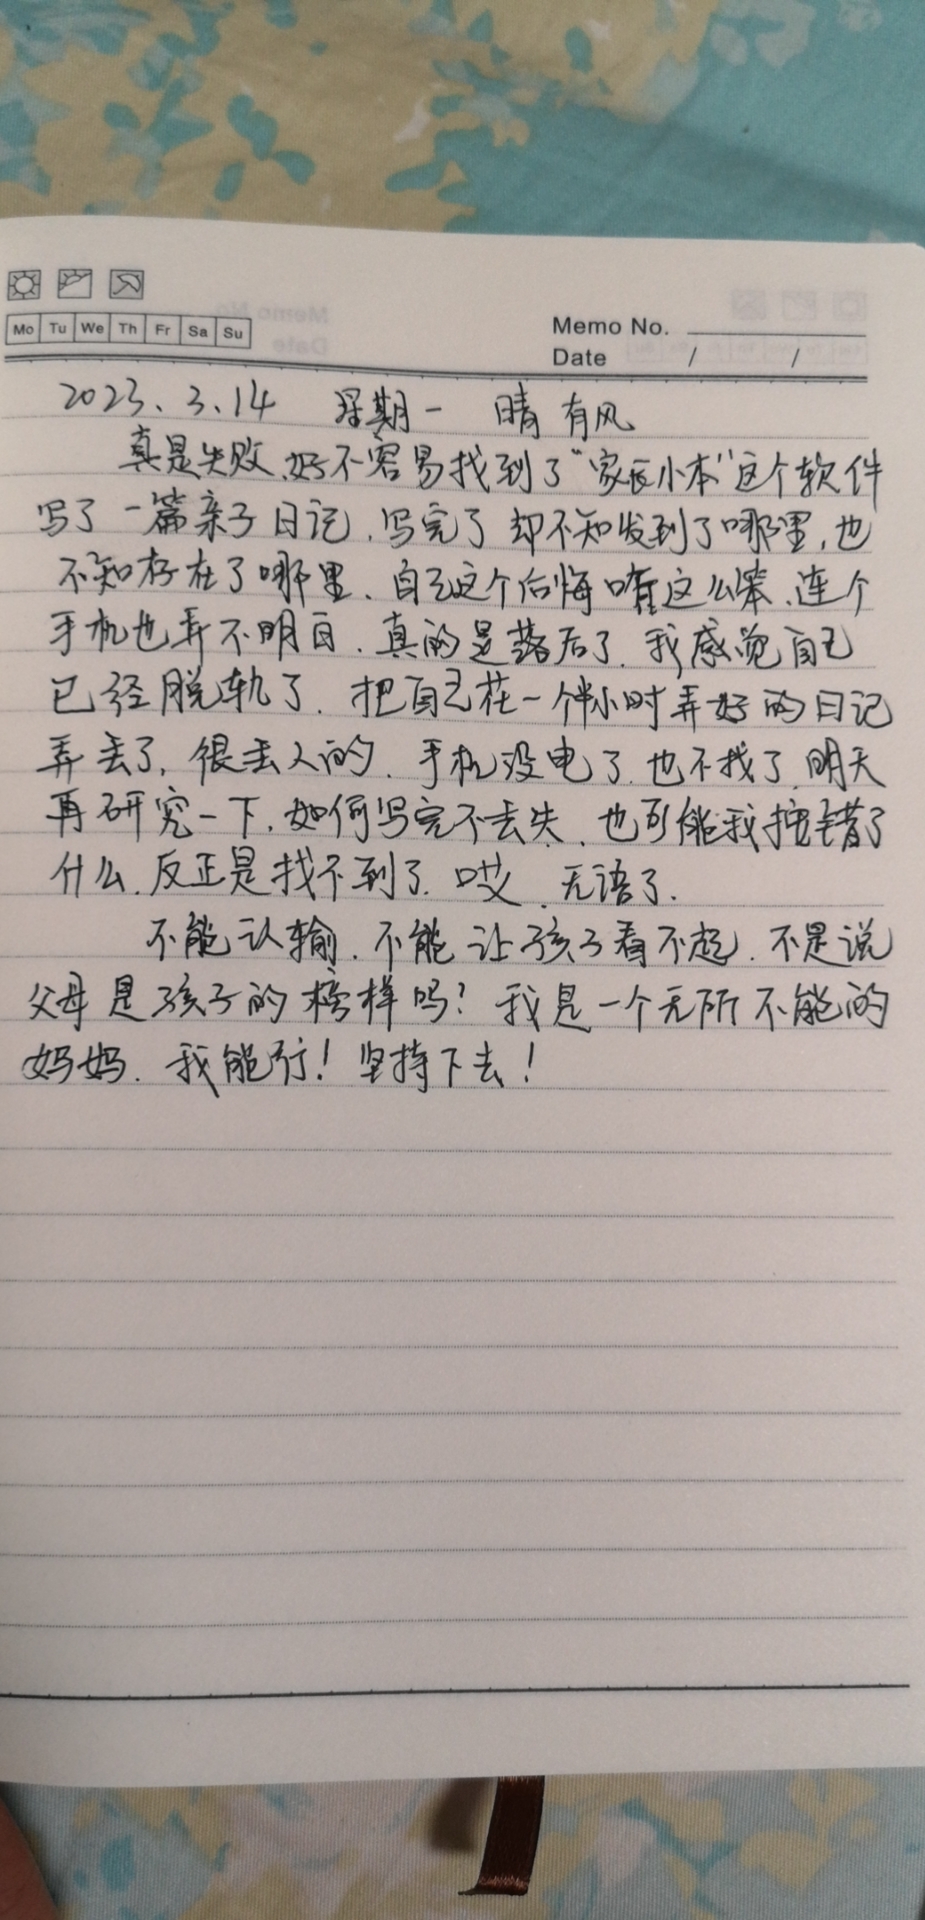 Mo Tu We Th Fr Sa Su
Memo No.
Date / /
2023、3、14 星期一 晴 有风
真是失败、好不容易找到了“家长小本”这个软件
写了一篇亲子日记、写完了却不知发到了哪里,也
不知存在了哪里、自己这个后悔啥这么笨、连个
手机也弄不明白、真的是落后了、我感觉自己
已经脱轨了、把自己花一个半小时弄好的日记
弄丢了,很丢人的、手机没电了、也不找了、明天
再研究一下,如何写完不丢失、也可能我按错了
什么、反正是找不到了、哎、无语了.
不能认输、不能让孩子看不起、不是说
父母是孩子的榜样吗?我是一个无所不能的
妈妈、我能行!坚持下去!